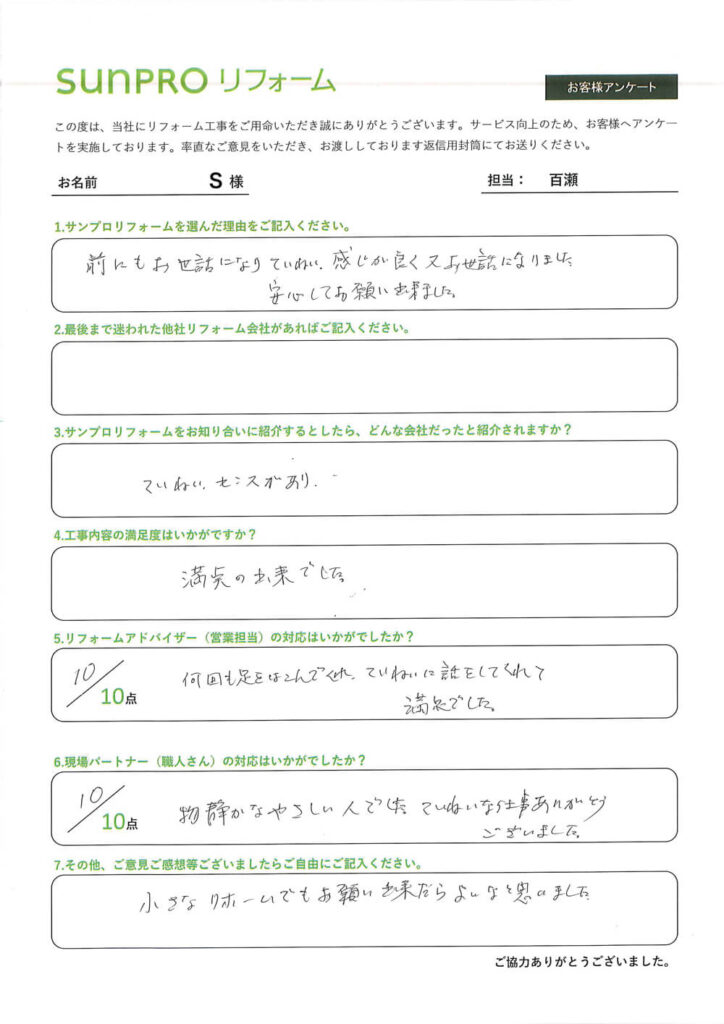 sunPRO リフォーム
お客様アンケート
この度は、当社にリフォーム工事をご用命いただき誠にありがとうございます。サービス向上のため、お客様へアンケー
トを実施しております。率直なご意見をいただき、お渡ししております返信用封筒にてお送りください。
お名前 S 様 担当： 百瀬
1.サンプロリフォームを選んだ理由をご記入ください。
前にもお世話になりていねい、感じが良く又お世話になりました
安心してお願い出来ました。
2.最後まで迷われた他社リフォーム会社があればご記入ください。
3.サンプロリフォームをお知り合いに紹介するとしたら、どんな会社だったと紹介されますか？
ていねい、センスがあり、
4.工事内容の満足度はいかがですか？
満点の出来でした。
5.リフォームアドバイザー（営業担当）の対応はいかがでしたか？
10/10点 何回も足をはこんでくれ、ていねいに話をしてくれて
満点でした。
6.現場パートナー（職人さん）の対応はいかがでしたか？
10/10点 物静かなやさしい人でした ていねいな仕事ありがとう
ございました。
7.その他、ご意見ご感想等ございましたらご自由にご記入ください。
小さなリホームでもお願い出来たらよいなと思いました
ご協力ありがとうございました。